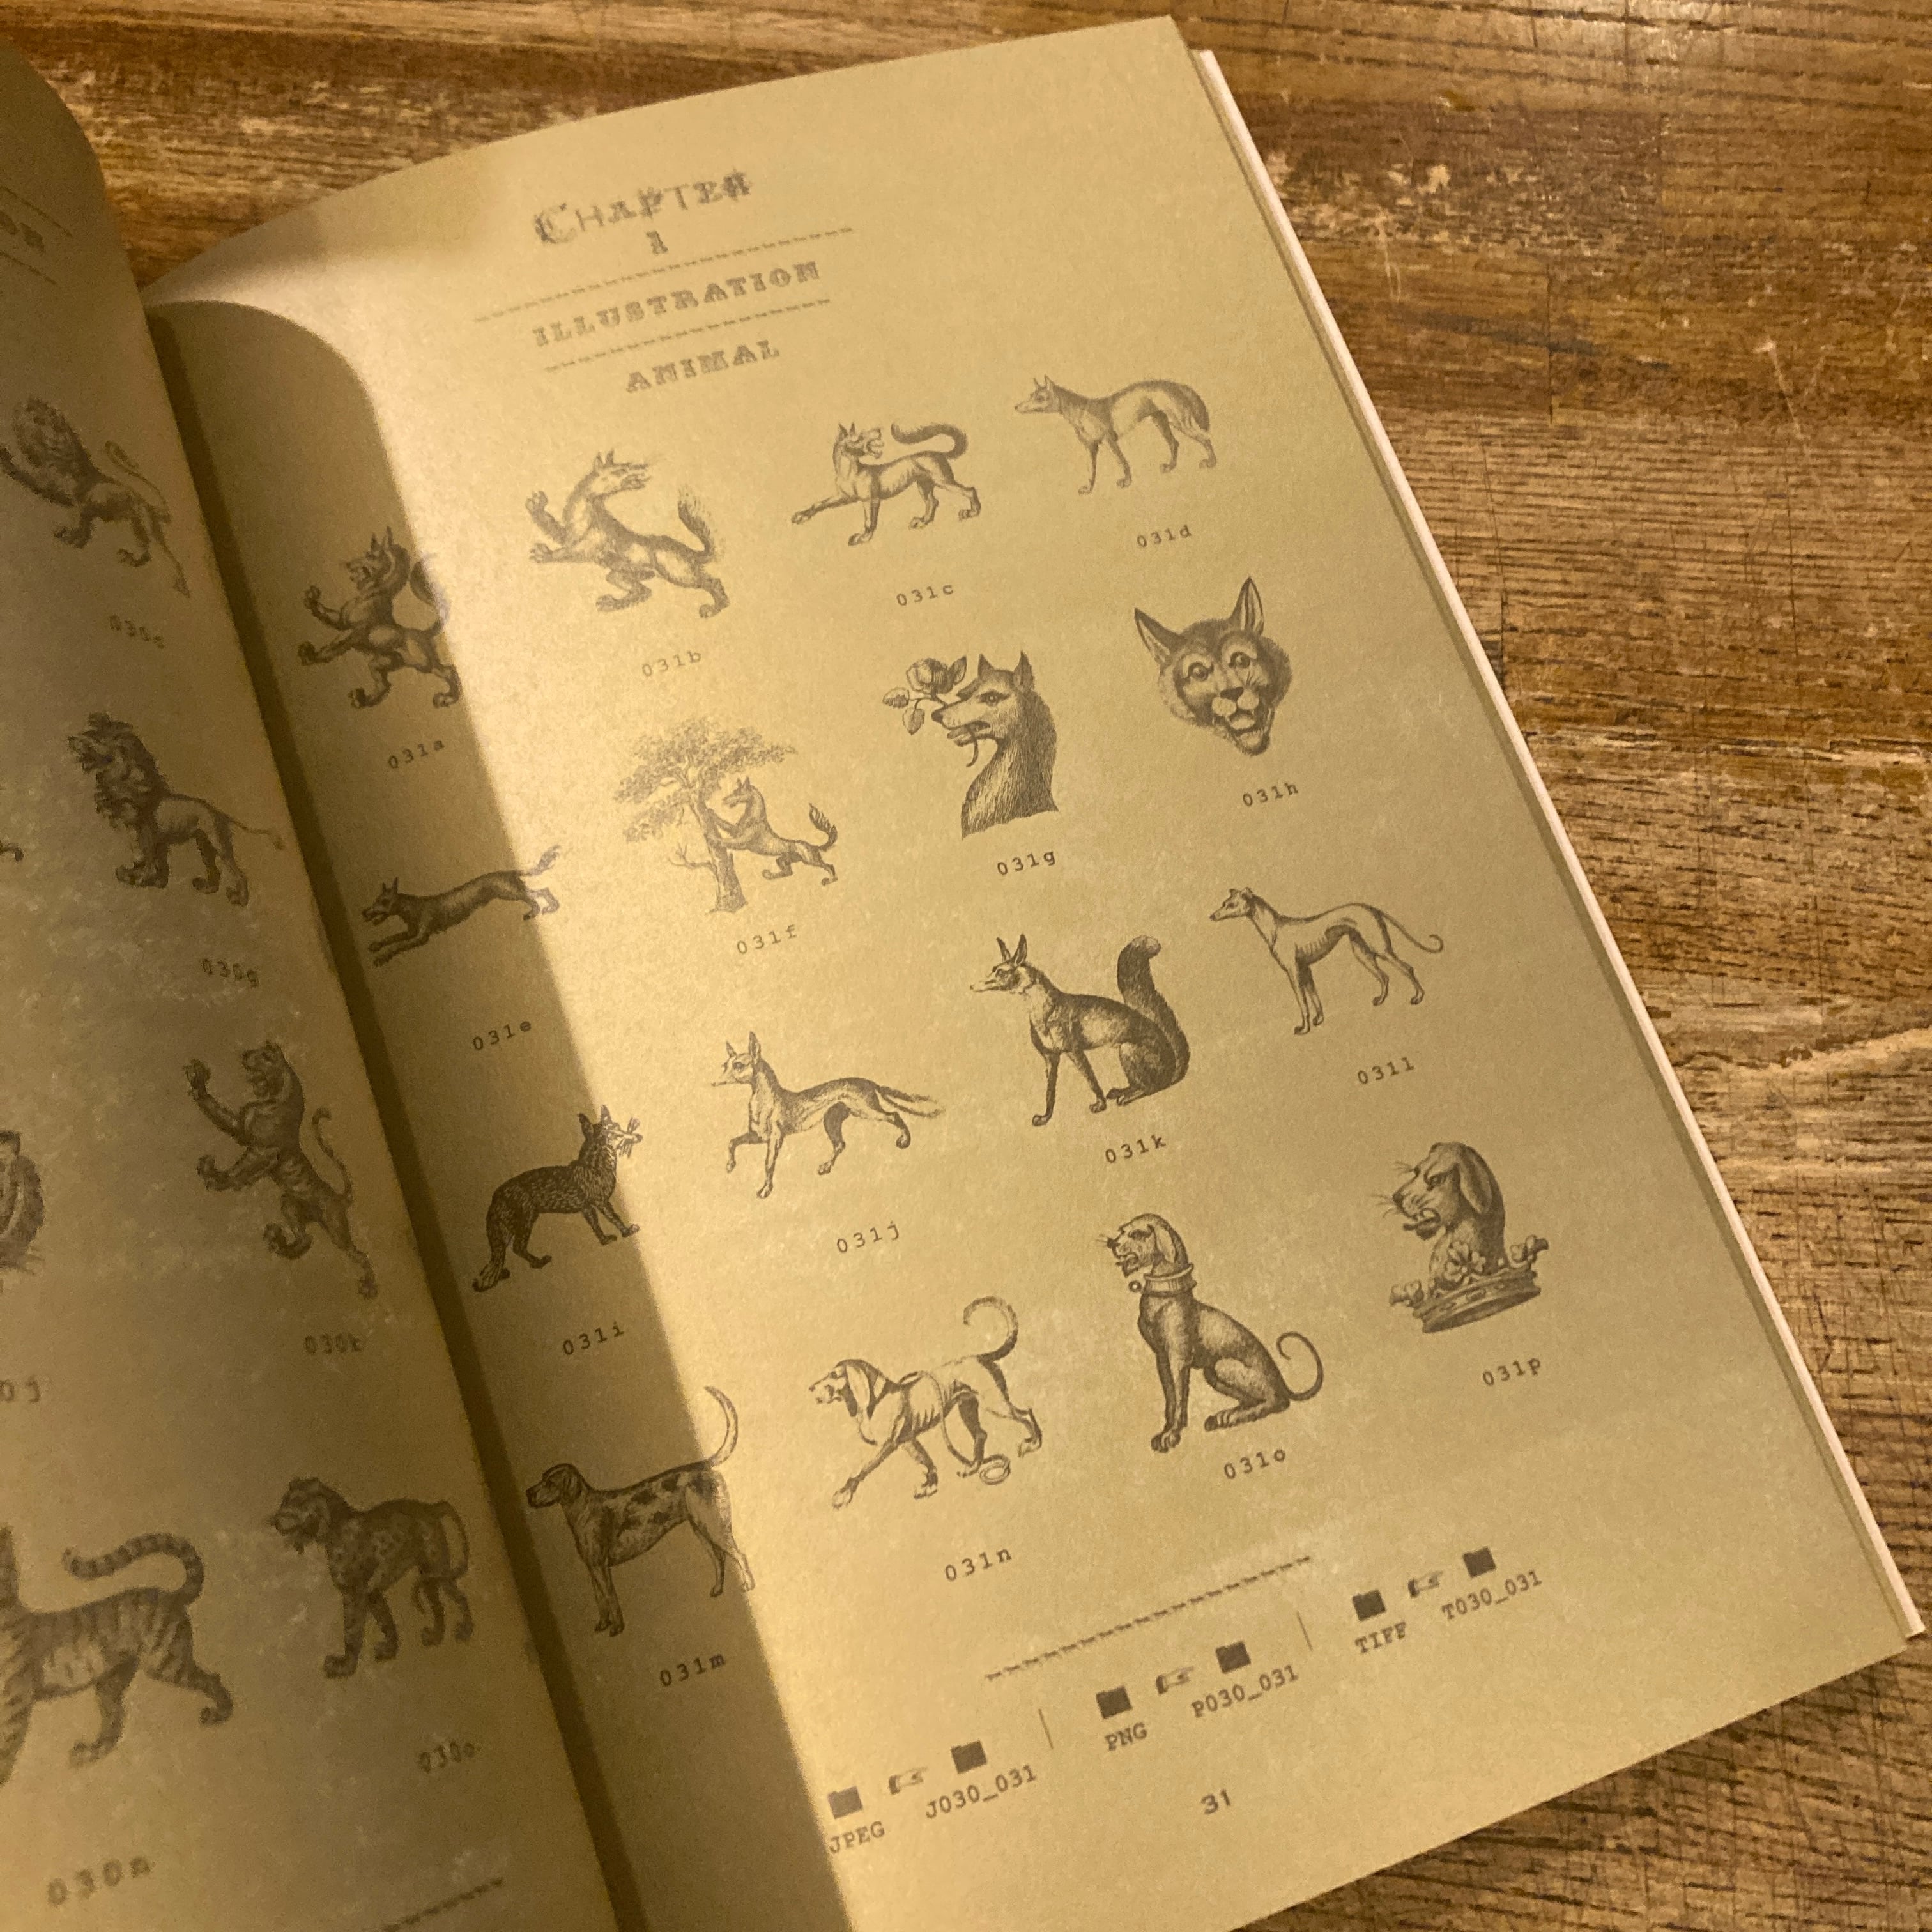 CHAPTER
1
ILLUSTRATION
ANIMAL
030g
030k
030o
030n
031a
031b
031c
031d
031e
031f
031g
031h
031i
031j
031k
031l
031m
031n
031o
031p
JPEG J030_031
PNG P030_031
TIFF T030_031
31